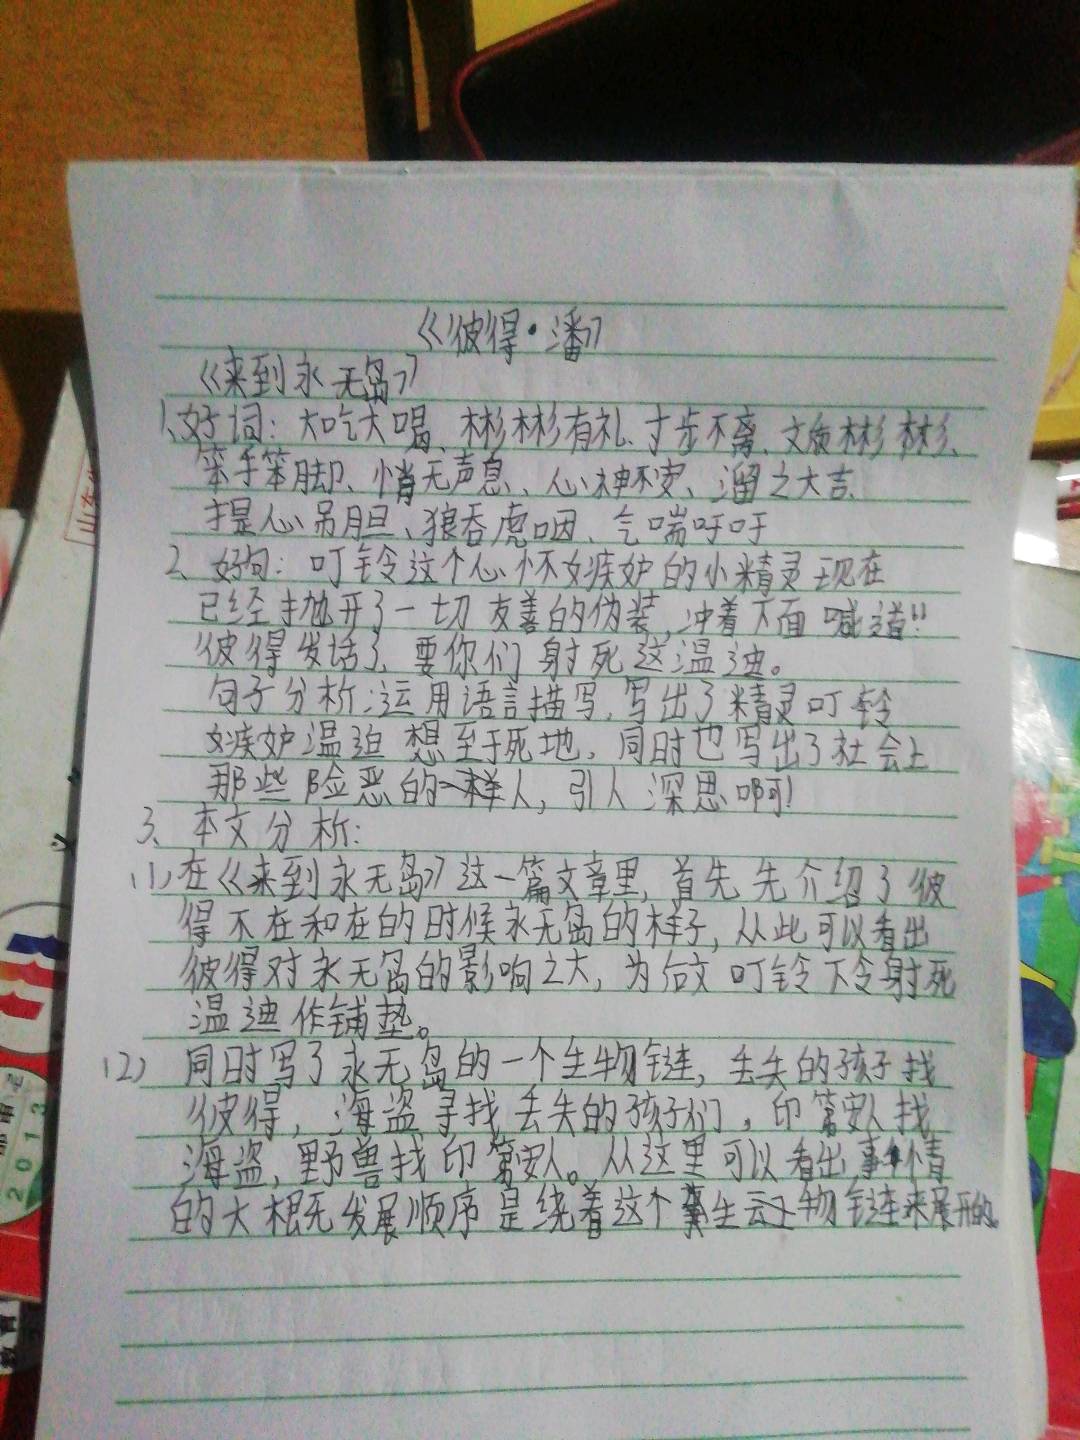 《彼得·潘》
《来到永无岛》
1、好词：大吃大喝、彬彬有礼、寸步不离、文质彬彬、
笨手笨脚、悄无声息、心神不安、溜之大吉、
提心吊胆、狼吞虎咽、气喘吁吁
2、好句：叮铃这个心怀嫉妒的小精灵现在
已经抛开了一切友善的伪装，冲着下面喊道："
彼得发话了，要你们射死这温迪。
句子分析：运用语言描写，写出了精灵叮铃
嫉妒温迪想至于死地，同时也写出了社会上
那些险恶的一样人，引人深思啊！
3、本文分析：
(1)在《来到永无岛》这一篇文章里，首先先介绍了彼
得不在和在的时候永无岛的样子，从此可以看出
彼得对永无岛的影响之大，为后文叮铃下令射死
温迪作铺垫。
(2) 同时写了永无岛的一个生物链，丢失的孩子找
彼得，海盗寻找丢失的孩子们，印第安人找
海盗，野兽找印第安人。从这里可以看出事情
的大概发展顺序是绕着这个生物链来展开的。
2013